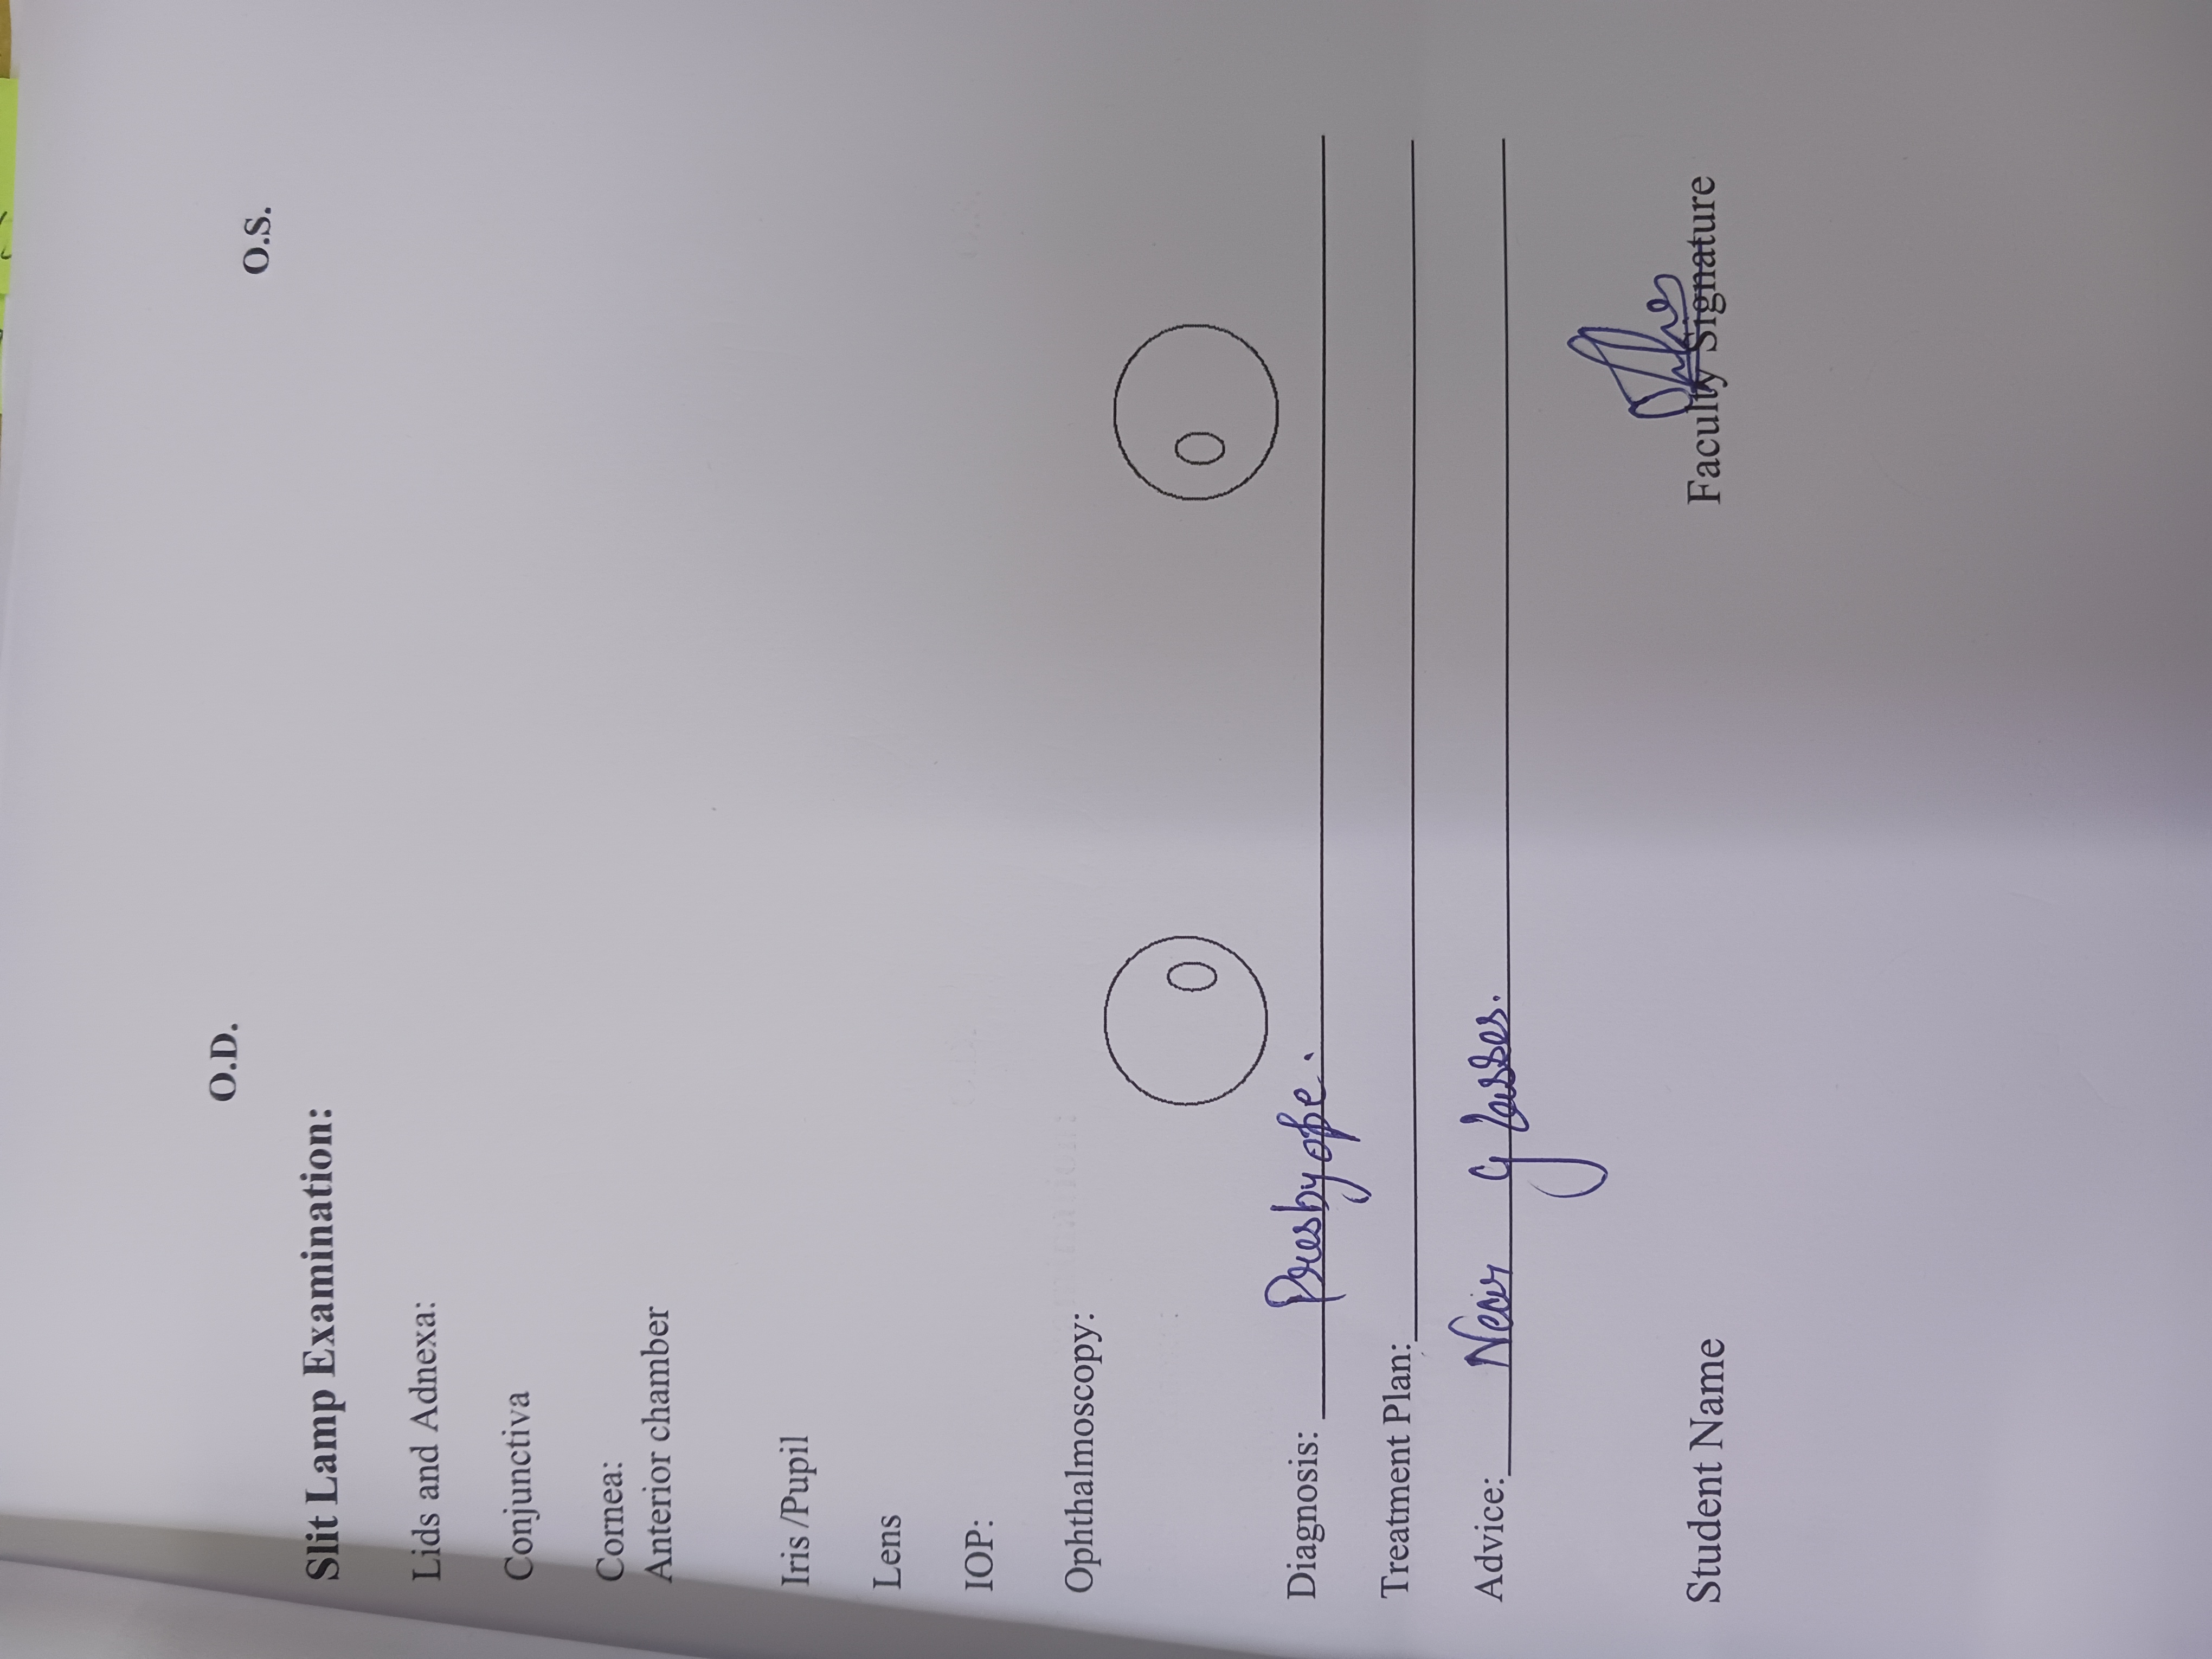 O.D. O.S.
Slit Lamp Examination:
Lids and Adnexa:
Conjunctiva
Cornea:
Anterior chamber
Iris /Pupil
Lens
IOP:
Ophthalmoscopy:
Diagnosis: Presbyope.
Treatment Plan:
Advice: Near glasses.
Student Name Faculty Signature